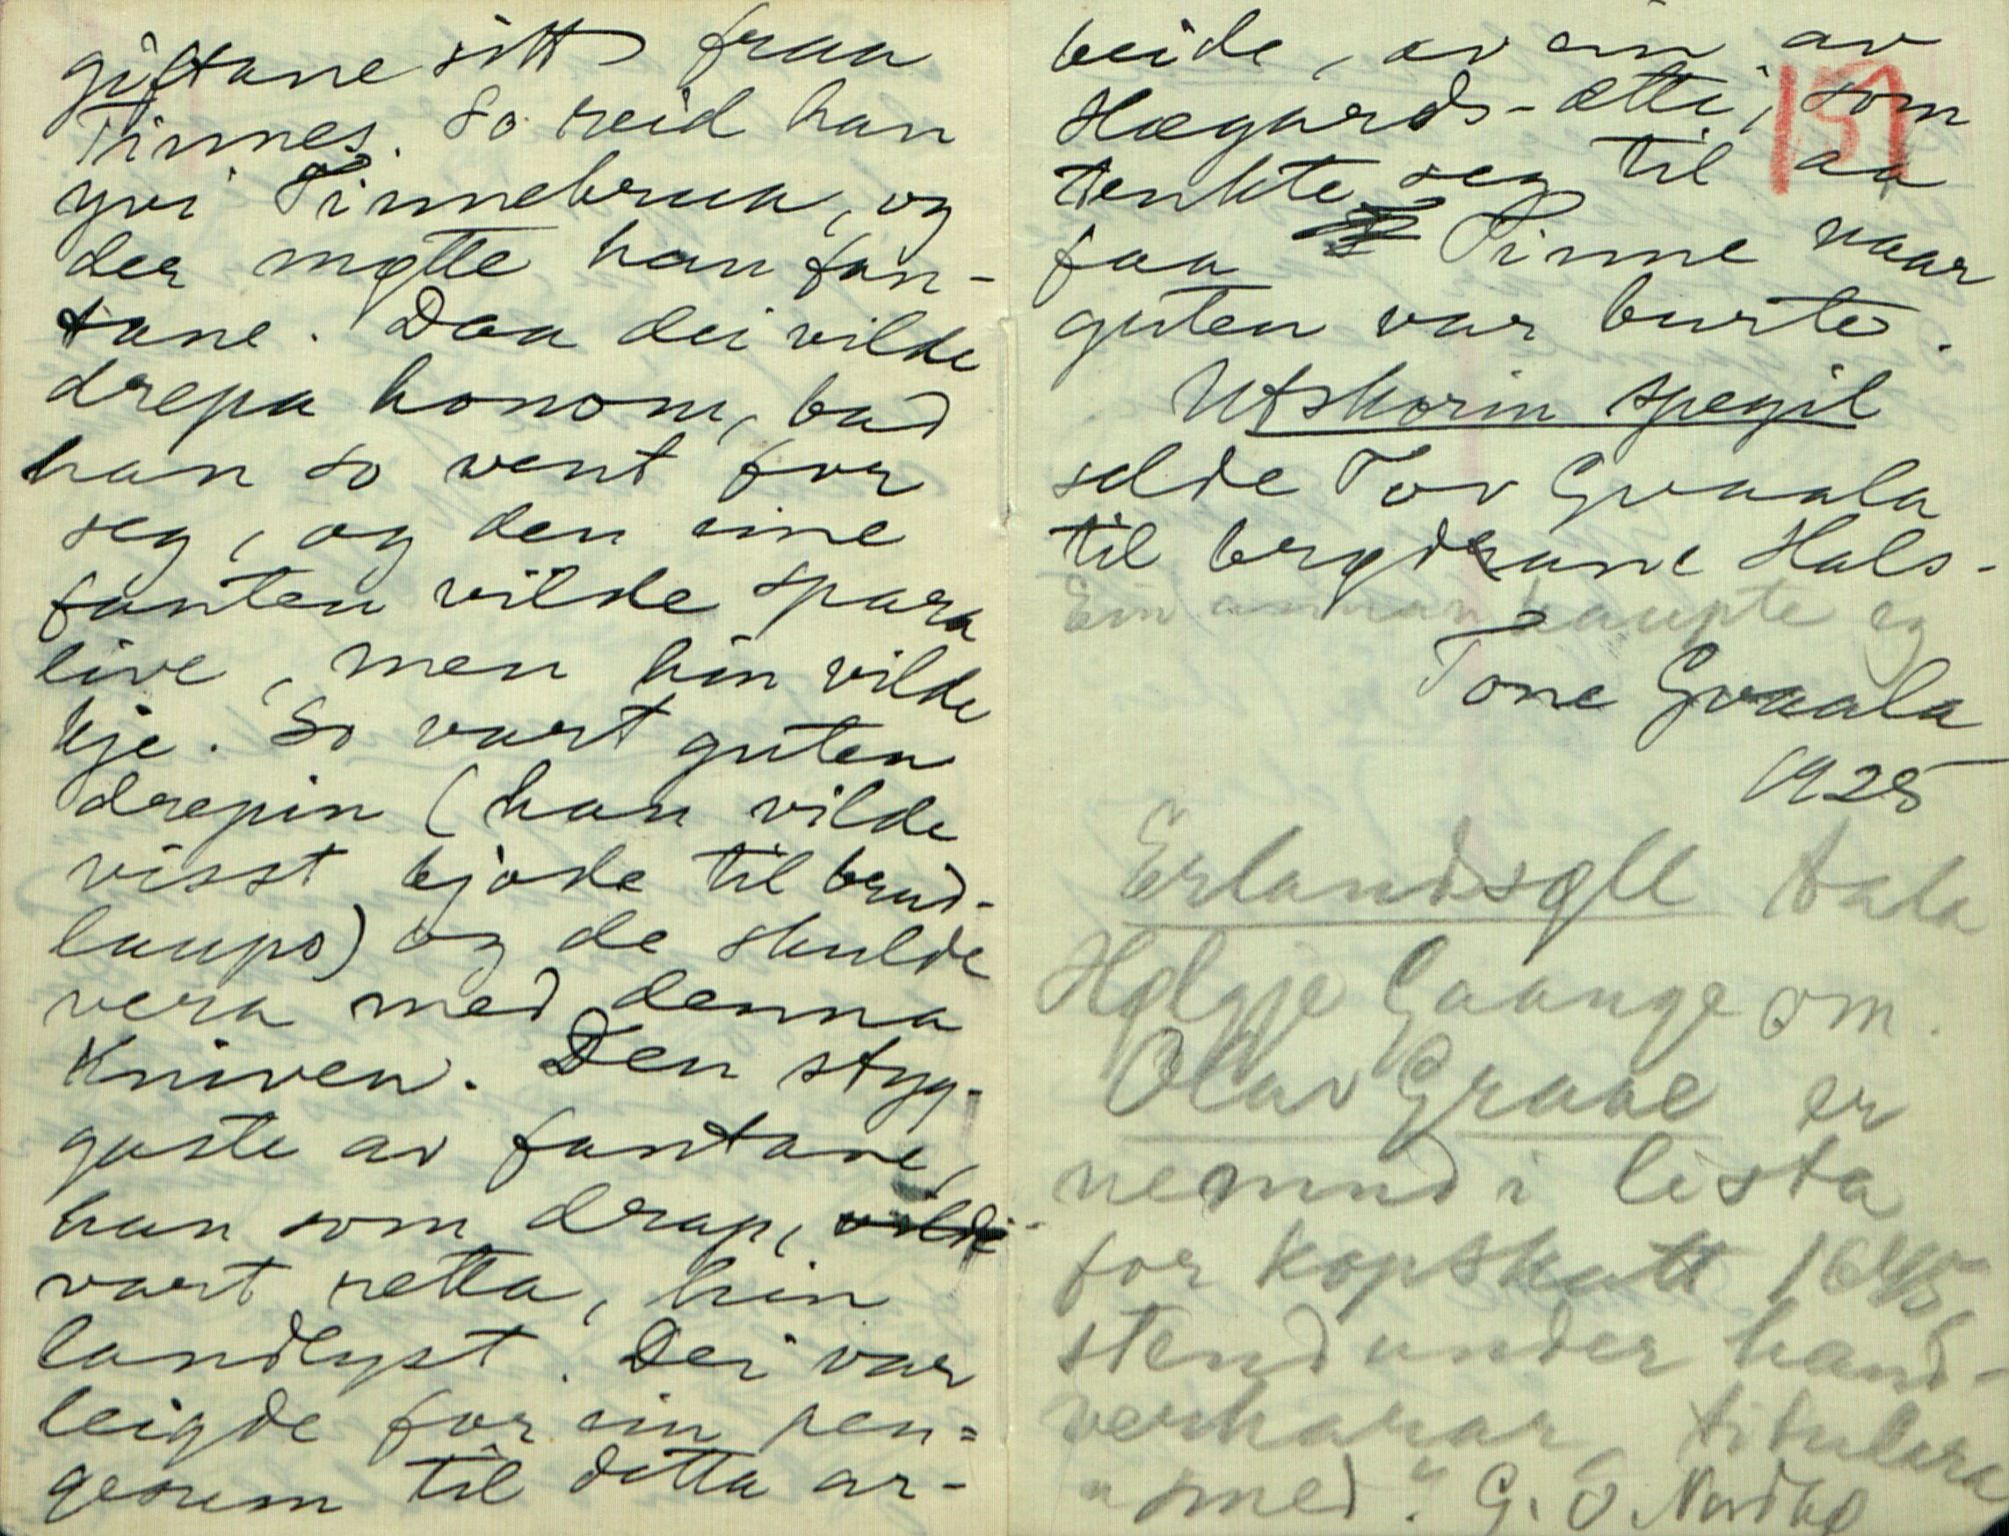 giftane sitt fraa
Tinnes. So reid han
yvi Tinnebrua, og
der møtte han fan-
tane. Daa dei vilde
drepa honom, bad
han so vent for
seg, og den eine
fanten vilde spara
live, men hin vilde
kje. So vart guten
drepin (han vilde
visst bjode til brud-
laups) og de skulde
vera med denna
kniven. Den styg-
gaste av fantane,
han som drap, vilde
vart retta, hin
landlyst. Dei var
leigde for ein pen=
gesum til detta ar-
beide, av ein av
Hægards-ætti, som
tenkte seg til aa
faa Tinne naar
guten var burte.
Utskorin spegil
selde Tov Gvaala
til brydrane Hals-
Ein annan kaupte eg
Tone Gvaala
1925
Erlandsøll tala
Hølgje Gaange om.
Olav Graae er
nemnd i lista
for kopskatt 1645,
stend under hand-
verkarar, titulera
"smed". G. O. Nordbø
151